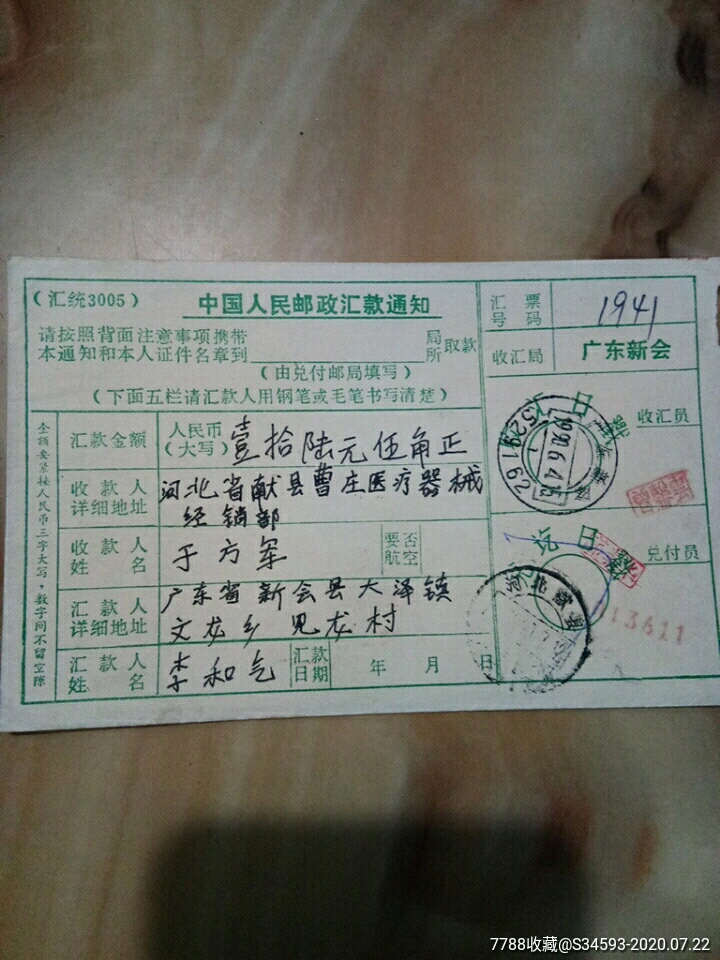 （汇统3005）
中国人民邮政汇款通知
请按照背面注意事项携带
本通知和本人证件名章到
局
所
取款
（由兑付邮局填写）
（下面五栏请汇款人用钢笔或毛笔书写清楚）
汇票
号码
1941
收汇局
广东新会
收汇员
兑付员
金额要紧接人民币三字大写，数字间不留空隙
汇款金额
人民币
（大写）
壹拾陆元伍角正
收款人
详细地址
河北省献县曹庄医疗器械
经销部
收款人
姓名
于方军
要否
航空
汇款人
详细地址
广东省新会县大泽镇
文龙乡见龙村
汇款人
姓名
李和气
汇款
日期
年 月 日
日
兑日
河北献县
013611
7788收藏@S34593-2020.07.22